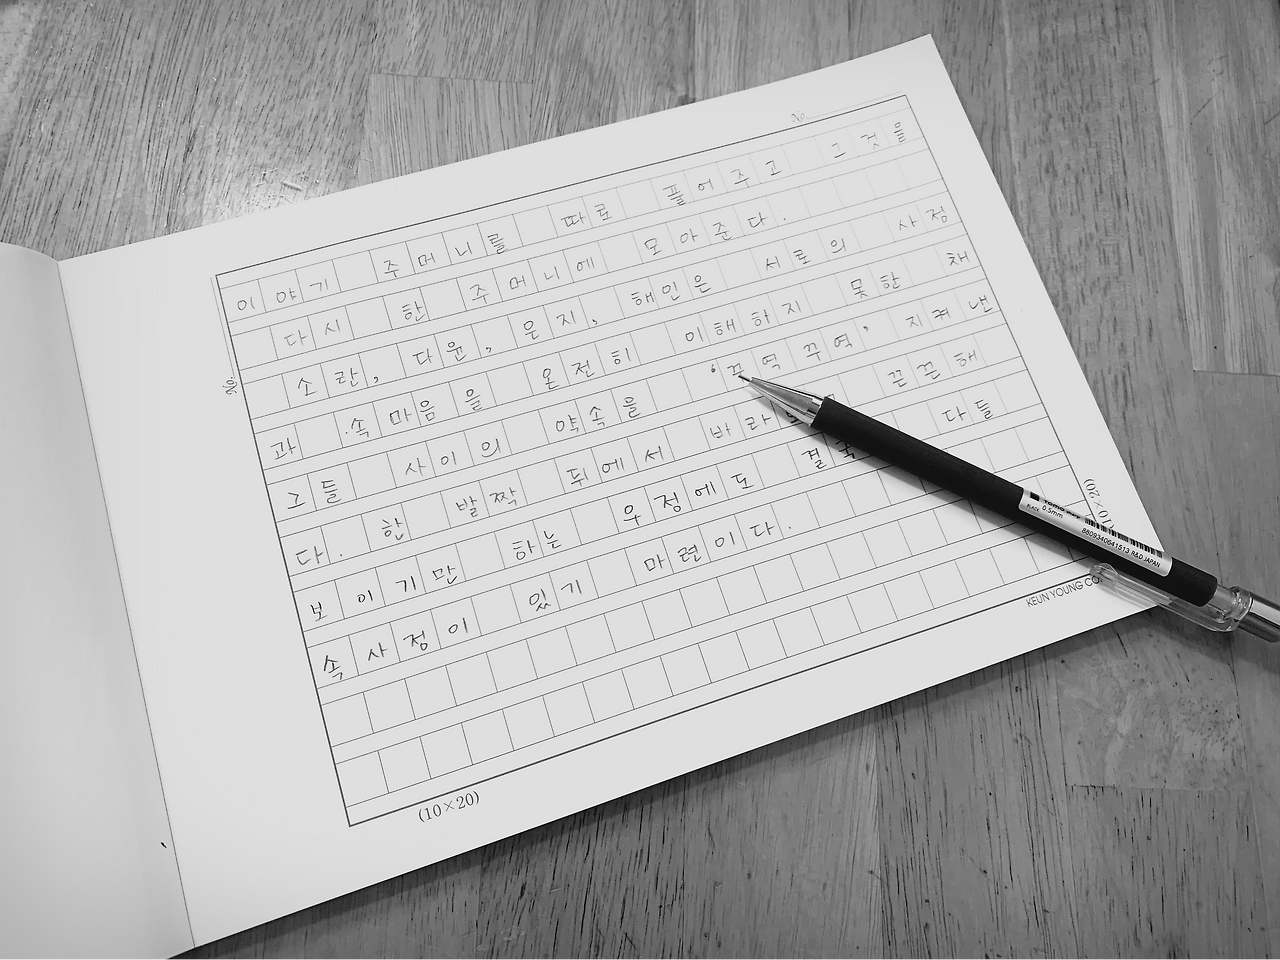 No.
이야기 주머니를 따로 풀어주고 그것을
다시 한 주머니에 모아준다.
소란, 다윤, 은지, 해인은 서로의 사정
과 속마음을 온전히 이해하지 못한 채
그들 사이의 약속을 '꾸역꾸역' 지켜낸
다. 한 발짝 뒤에서 바라 끈끈해
보이기만 하는 우정에도 결국 다들
속사정이 있기 마련이다.
No.
(10×20)
KEUN YOUNG CO.
BLACK 0.5mm
8809340641513 R&D JAPAN